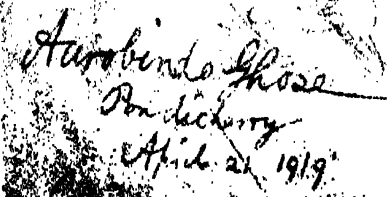 Aurobindo Ghose
Pondicherry
April 21 1919